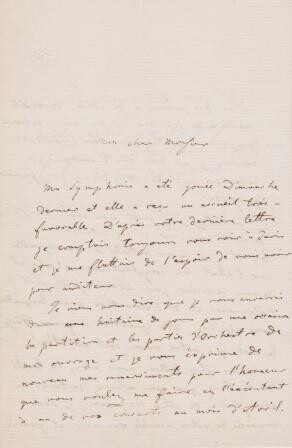 Mon cher Monsieur
Ma Symphonie a été jouée Dimanche
dernier et elle a reçu un accueil très-
favorable. D'après votre dernière lettre
je comptais toujours vous voir à Paris
et je me flattais de l'espoir de vous avoir
pour auditeur.
Je viens vous dire que je vous enverrai
dans une huitaine de jours par une occasion
la partition et les parties d'Orchestre de
mon ouvrage et je vous exprime de
nouveau mes remerciments pour l'honneur
que vous voulez me faire en l'exécutant
à un de vos concerts au mois d'Avril.